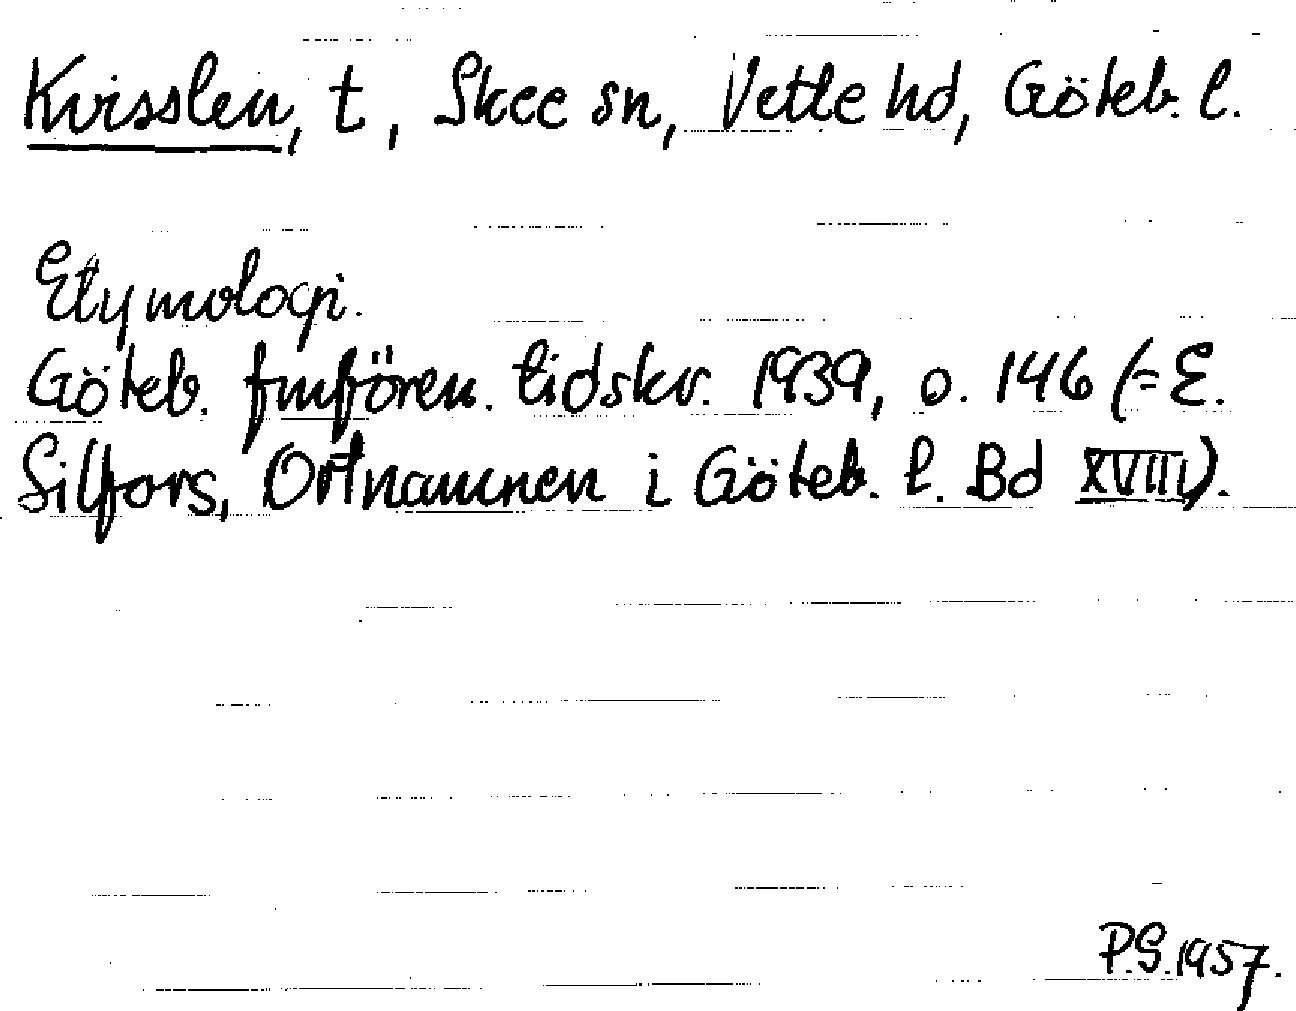 Kvisslen, t, Skee sn, Vette hd, Göteb. l.
Etymologi.
Göteb. fmfören. tidskr. 1939, s. 146 (= E.
Silfors, Ortnamnen i Göteb. l. Bd XVIII).
P.S. 1957.